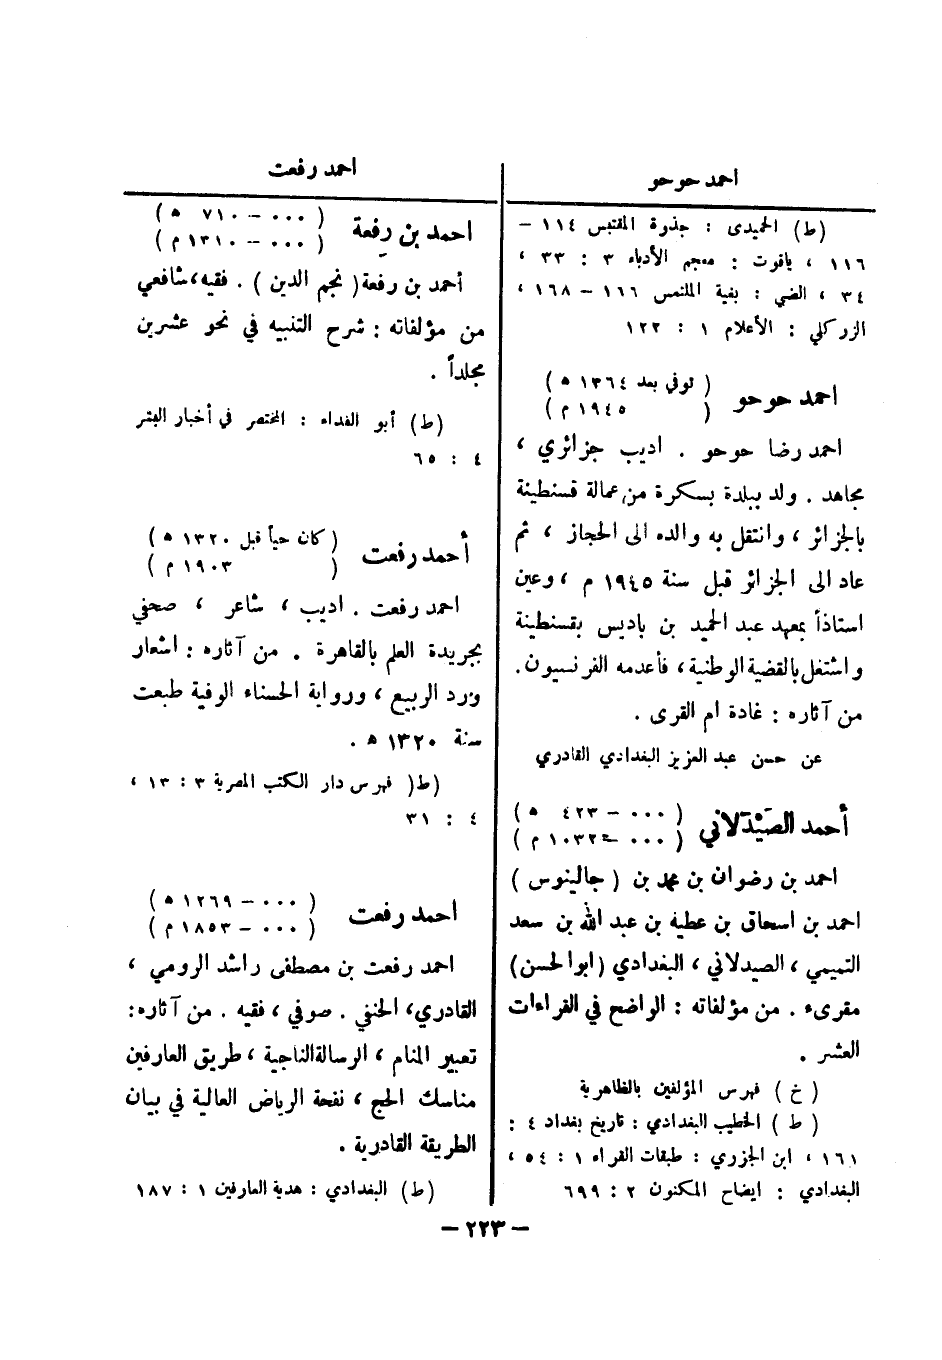 احمد حوحو
(ط) الحميدى : جذوة المقتبس ١١٤ –
١١٦ ، ياقوت : معجم الأدباء ٣ : ٣٣ ،
٣٤ ، الضي : بغية الملتمس ١٦٦ – ١٦٨ ،
الزركلي : الأعلام ١ : ١٢٢
احمد حوحو ( توفي بعد ١٣٦٤ ه )
( ١٩٤٥ م )
احمد رضا حوحو . اديب جزائري ،
مجاهد . ولد ببلدة بسكرة من عمالة قسنطينة
بالجزائر ، وانتقل به والده الى الحجاز ، ثم
عاد الى الجزائر قبل سنة ١٩٤٥ م ، وعين
استاذاً بمعهد عبد الحميد بن باديس بقسنطينة
واشتغل بالقضية الوطنية ، فأعدمه الفرنسيون .
من آثاره : غادة ام القرى .
عن حسن عبد العزيز البغدادي القادري
أحمد الصَيْدَلاني ( ٠٠٠ – ٤٢٣ ه )
( ٠٠٠ – ١٠٣٢ م )
احمد بن رضوان بن محمد بن ( جالينوس )
احمد بن اسحاق بن عطيه بن عبد الله بن سعد
التميمي ، الصيدلاني ، البغدادي (ابو الحسن)
مقرىء . من مؤلفاته : الواضح في القراءات
العشر .
( خ ) فهرس المؤلفين بالظاهرية
( ط ) الخطيب البغدادي : تاريخ بغداد ٤ :
١٦١ ، ابن الجزري : طبقات القراء ١ : ٥٤ ،
البغدادي : ايضاح المكنون ٢ : ٦٩٩
احمد رفعت
احمد بن رِفعة ( ٠٠٠ – ٧١٠ ه )
( ٠٠٠ – ١٣١٠ م )
أحمد بن رفعة ( نجم الدين ) . فقيه ، شافعي
من مؤلفاته : شرح التنبيه في نحو عشرين
مجلداً .
(ط) أبو الفداء : المختصر في أخبار البشر
٤ : ٦٥
أحمد رفعت ( كان حياً قبل ١٣٢٠ ه )
( ١٩٠٣ م )
احمد رفعت . اديب ، شاعر ، صحفي
بجريدة العلم بالقاهرة . من آثاره : اشعار
ورد الربيع ، ورواية الحسناء الوفية طبعت
سنة ١٣٢٠ ه .
(ط( فهرس دار الكتب المصرية ٣ : ١٣ ،
٤ : ٣١
احمد رفعت ( ٠٠٠ – ١٢٦٩ ه )
( ٠٠٠ – ١٨٥٣ م )
احمد رفعت بن مصطفى راشد الرومي ،
القادري ، الحنفي . صوفي ، فقيه . من آثاره :
تعبير المنام ، الرسالة الناجية ، طريق العارفين
مناسك الحج ، نفحة الرياض العالية في بيان
الطريقة القادرية .
(ط) البغدادي : هدية العارفين ١ : ١٨٧
– ٢٢٣ –